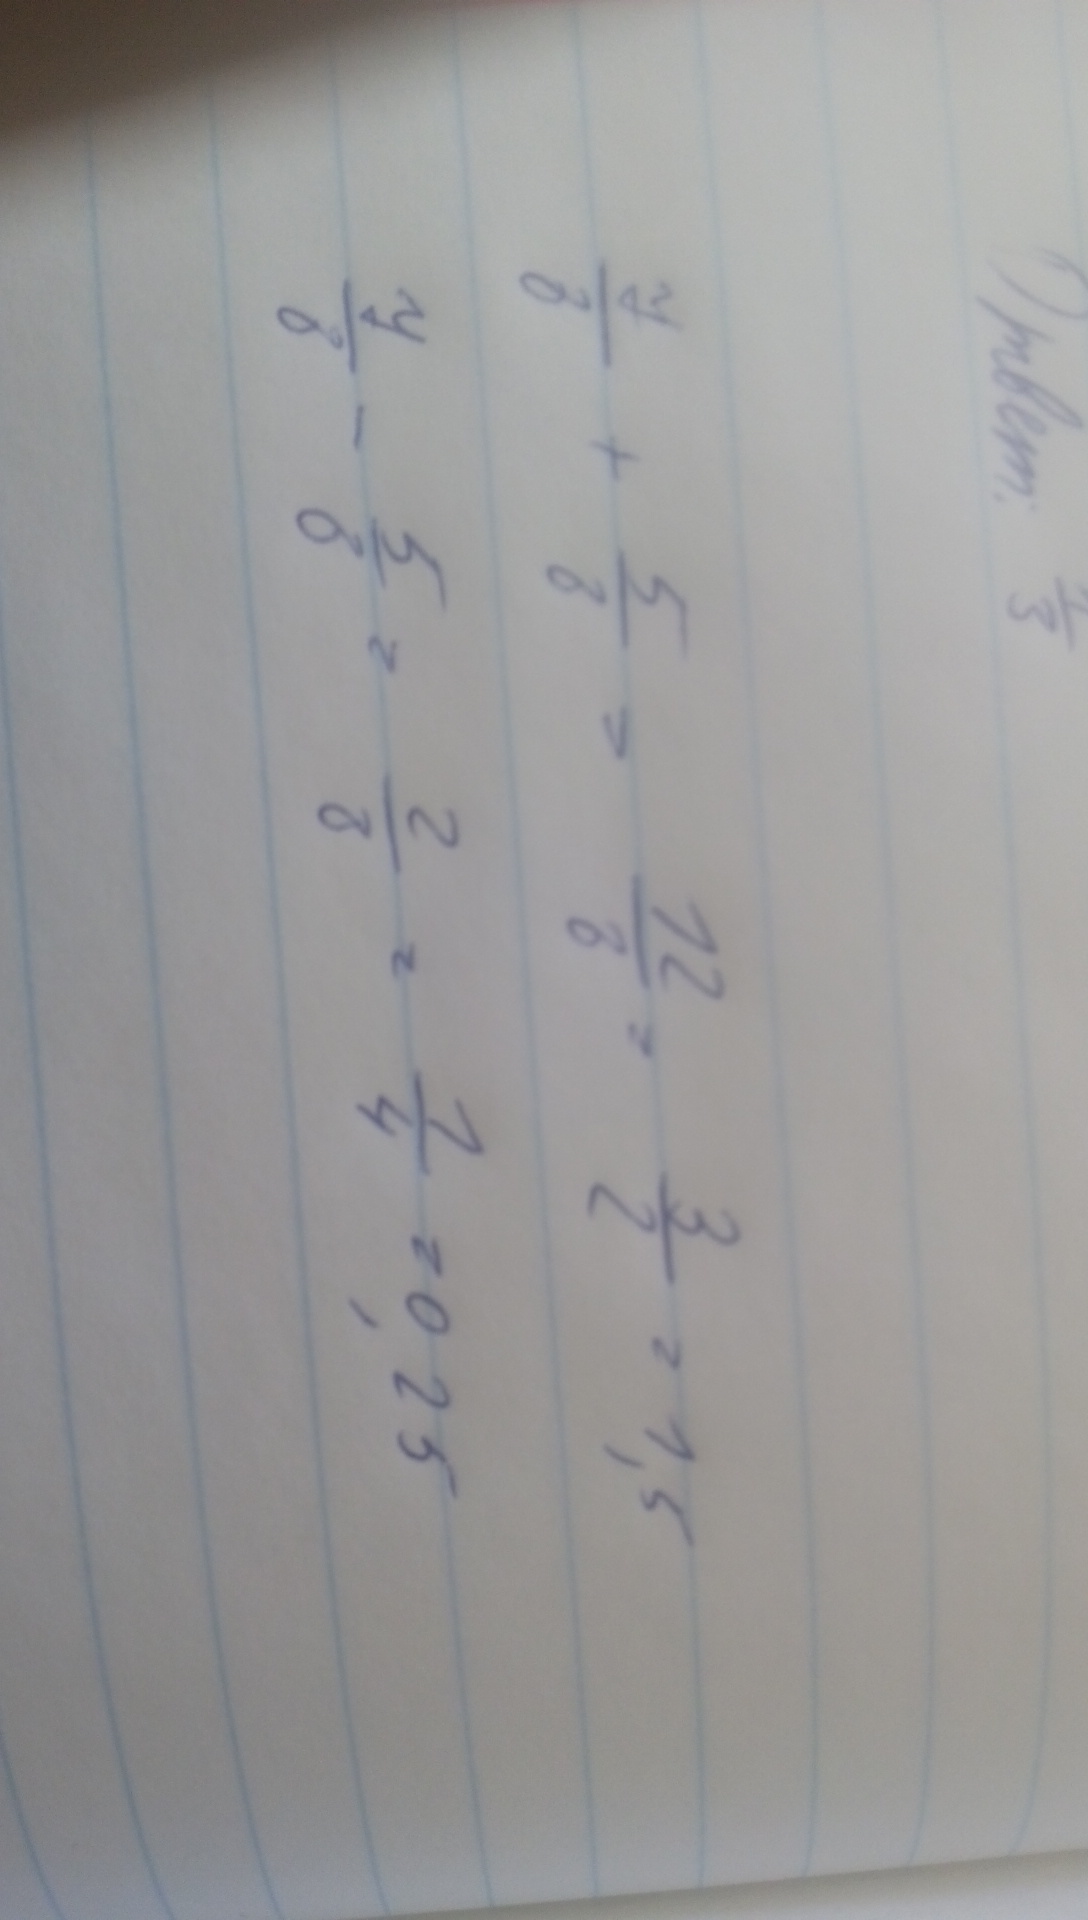 Ответ: 1/3
7/8 + 5/8 = 12/8 = 3/2 = 1,5
7/8 - 5/8 = 2/8 = 1/4 = 0,25